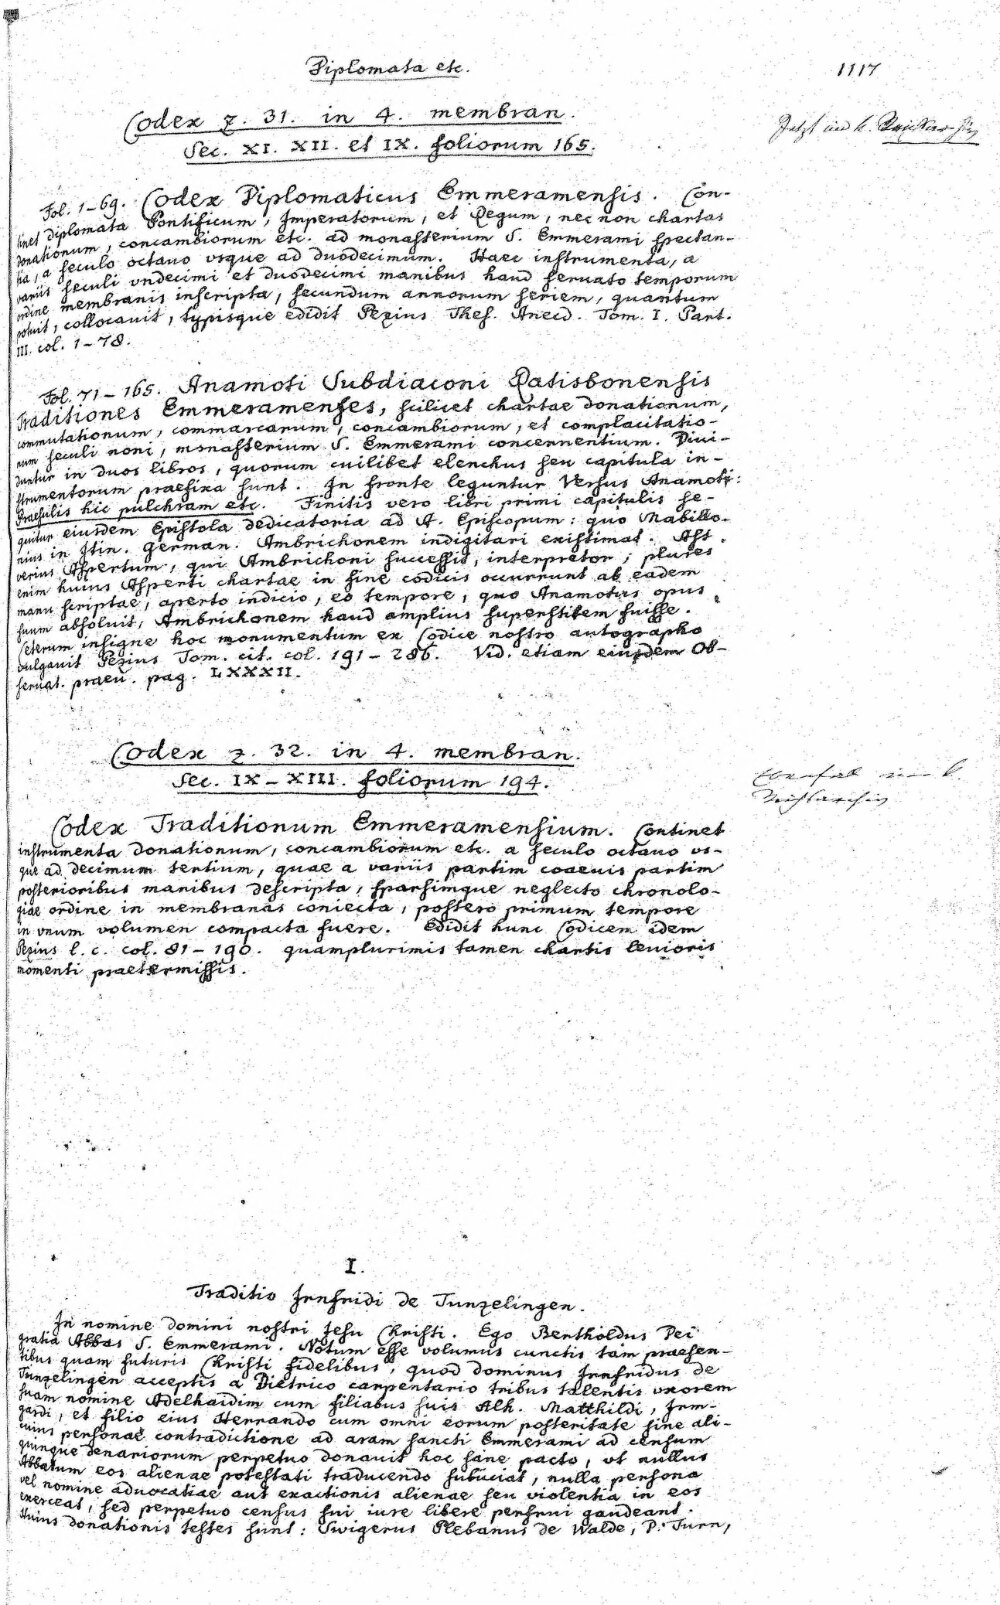 Diplomata etc. 1117
Codex z. 31. in 4. membran.
Sec. XI. XII. et IX. foliorum 165.
Jetzt im k.
Fol. 1-69. Codex Diplomaticus Emmeramensis. Con-
tinet diplomata Pontificum, Imperatorum, et Regum, nec non chartas
donationum, concambiorum etc. ad monasterium S. Emmerami spectan-
tia, a seculo octavo vsque ad duodecimum. Haec instrumenta, a
variis seculi vndecimi et duodecimi manibus haud seruato temporum
ordine membranis inscripta, secundum annorum seriem, quantum
potuit, collocauit, typisque edidit Pezius Thes. Anecd. Tom. I. Part.
III. col. 1-78.
Fol. 71-165. Anamoti Subdiaconi Ratisbonensis
Traditiones Emmeramenses, scilicet chartae donationum,
commutationum, commarcarum, concambiorum, et complacitatio-
num seculi noni, monasterium S. Emmerami concernentium. Diui-
duntur in duos libros, quorum cuilibet elenchus seu capitula in-
strumentorum praefixa sunt. In fronte leguntur Versus Anamoti:
Praesulis hic pulchram etc. Finitis vero libri primi capitulis se-
quitur eiusdem Epistola dedicatoria ad A. Episcopum: quo Mabillo-
nius in Itin. German. Ambrichonem indigitari existimat. Ast
verius Aspertum, qui Ambrichoni successit, interpretor; plures
enim huius Asperti chartae in fine codicis occurrunt ab eadem
manu scriptae, aperto indicio, eo tempore, quo Anamotus opus
suum absoluit, Ambrichonem haud amplius superstitem fuisse.
Ceterum insigne hoc monumentum ex Codice nostro autographo
vulgauit Pezius Tom. cit. col. 191-286. Vid. etiam eiusdem Ob-
seruat. praeu. pag. LXXXII.
Codex z. 32. in 4. membran.
Sec. IX-XIII. foliorum 194.
Ebenfals im k.
Reichsarchiv
Codex Traditionum Emmeramensium. Continet
instrumenta donationum, concambiorum etc. a seculo octauo vs-
que ad decimum tertium, quae a variis partim coaeuis partim
posterioribus manibus descripta, sparsimque neglecto chronolo-
giae ordine in membranas coniecta, postero primum tempore
in vnum volumen compacta fuere. Edidit hunc Codicem idem
Pezius l. c. col. 81-190. quamplurimis tamen chartis leuioris
momenti praetermissis.
I.
Traditio Irnfridi de Tunzelingen.
In nomine domini nostri Jesu Christi. Ego Bertholdus Dei
gratia Abbas S. Emmerami. Notum esse volumus cunctis tam praesen-
tibus quam futuris Christi fidelibus, quod dominus Irnfridus de
Tunzelingen acceptis a Dietrico carpentario tribus talentis vxorem
suam nomine Adelhaidim cum filiabus suis Alh. Matthildi, Irm-
gardi, et filio eius Hernando cum omni eorum posteritate sine ali-
cuius personae contradictione ad aram sancti Emmerami ad censum
quinque denariorum perpetuo donauit hoc sane pacto, vt nullus
Abbatum eos alienae potestati traducendo subiiciat, nulla persona
vel nomine aduocatiae aut exactionis alienae seu violentia in eos
exerceat, sed perpetuo census sui iure libere perfrui gaudeant.
Huius donationis testes sunt: Swigerus Plebanus de Walde, P. Turn,